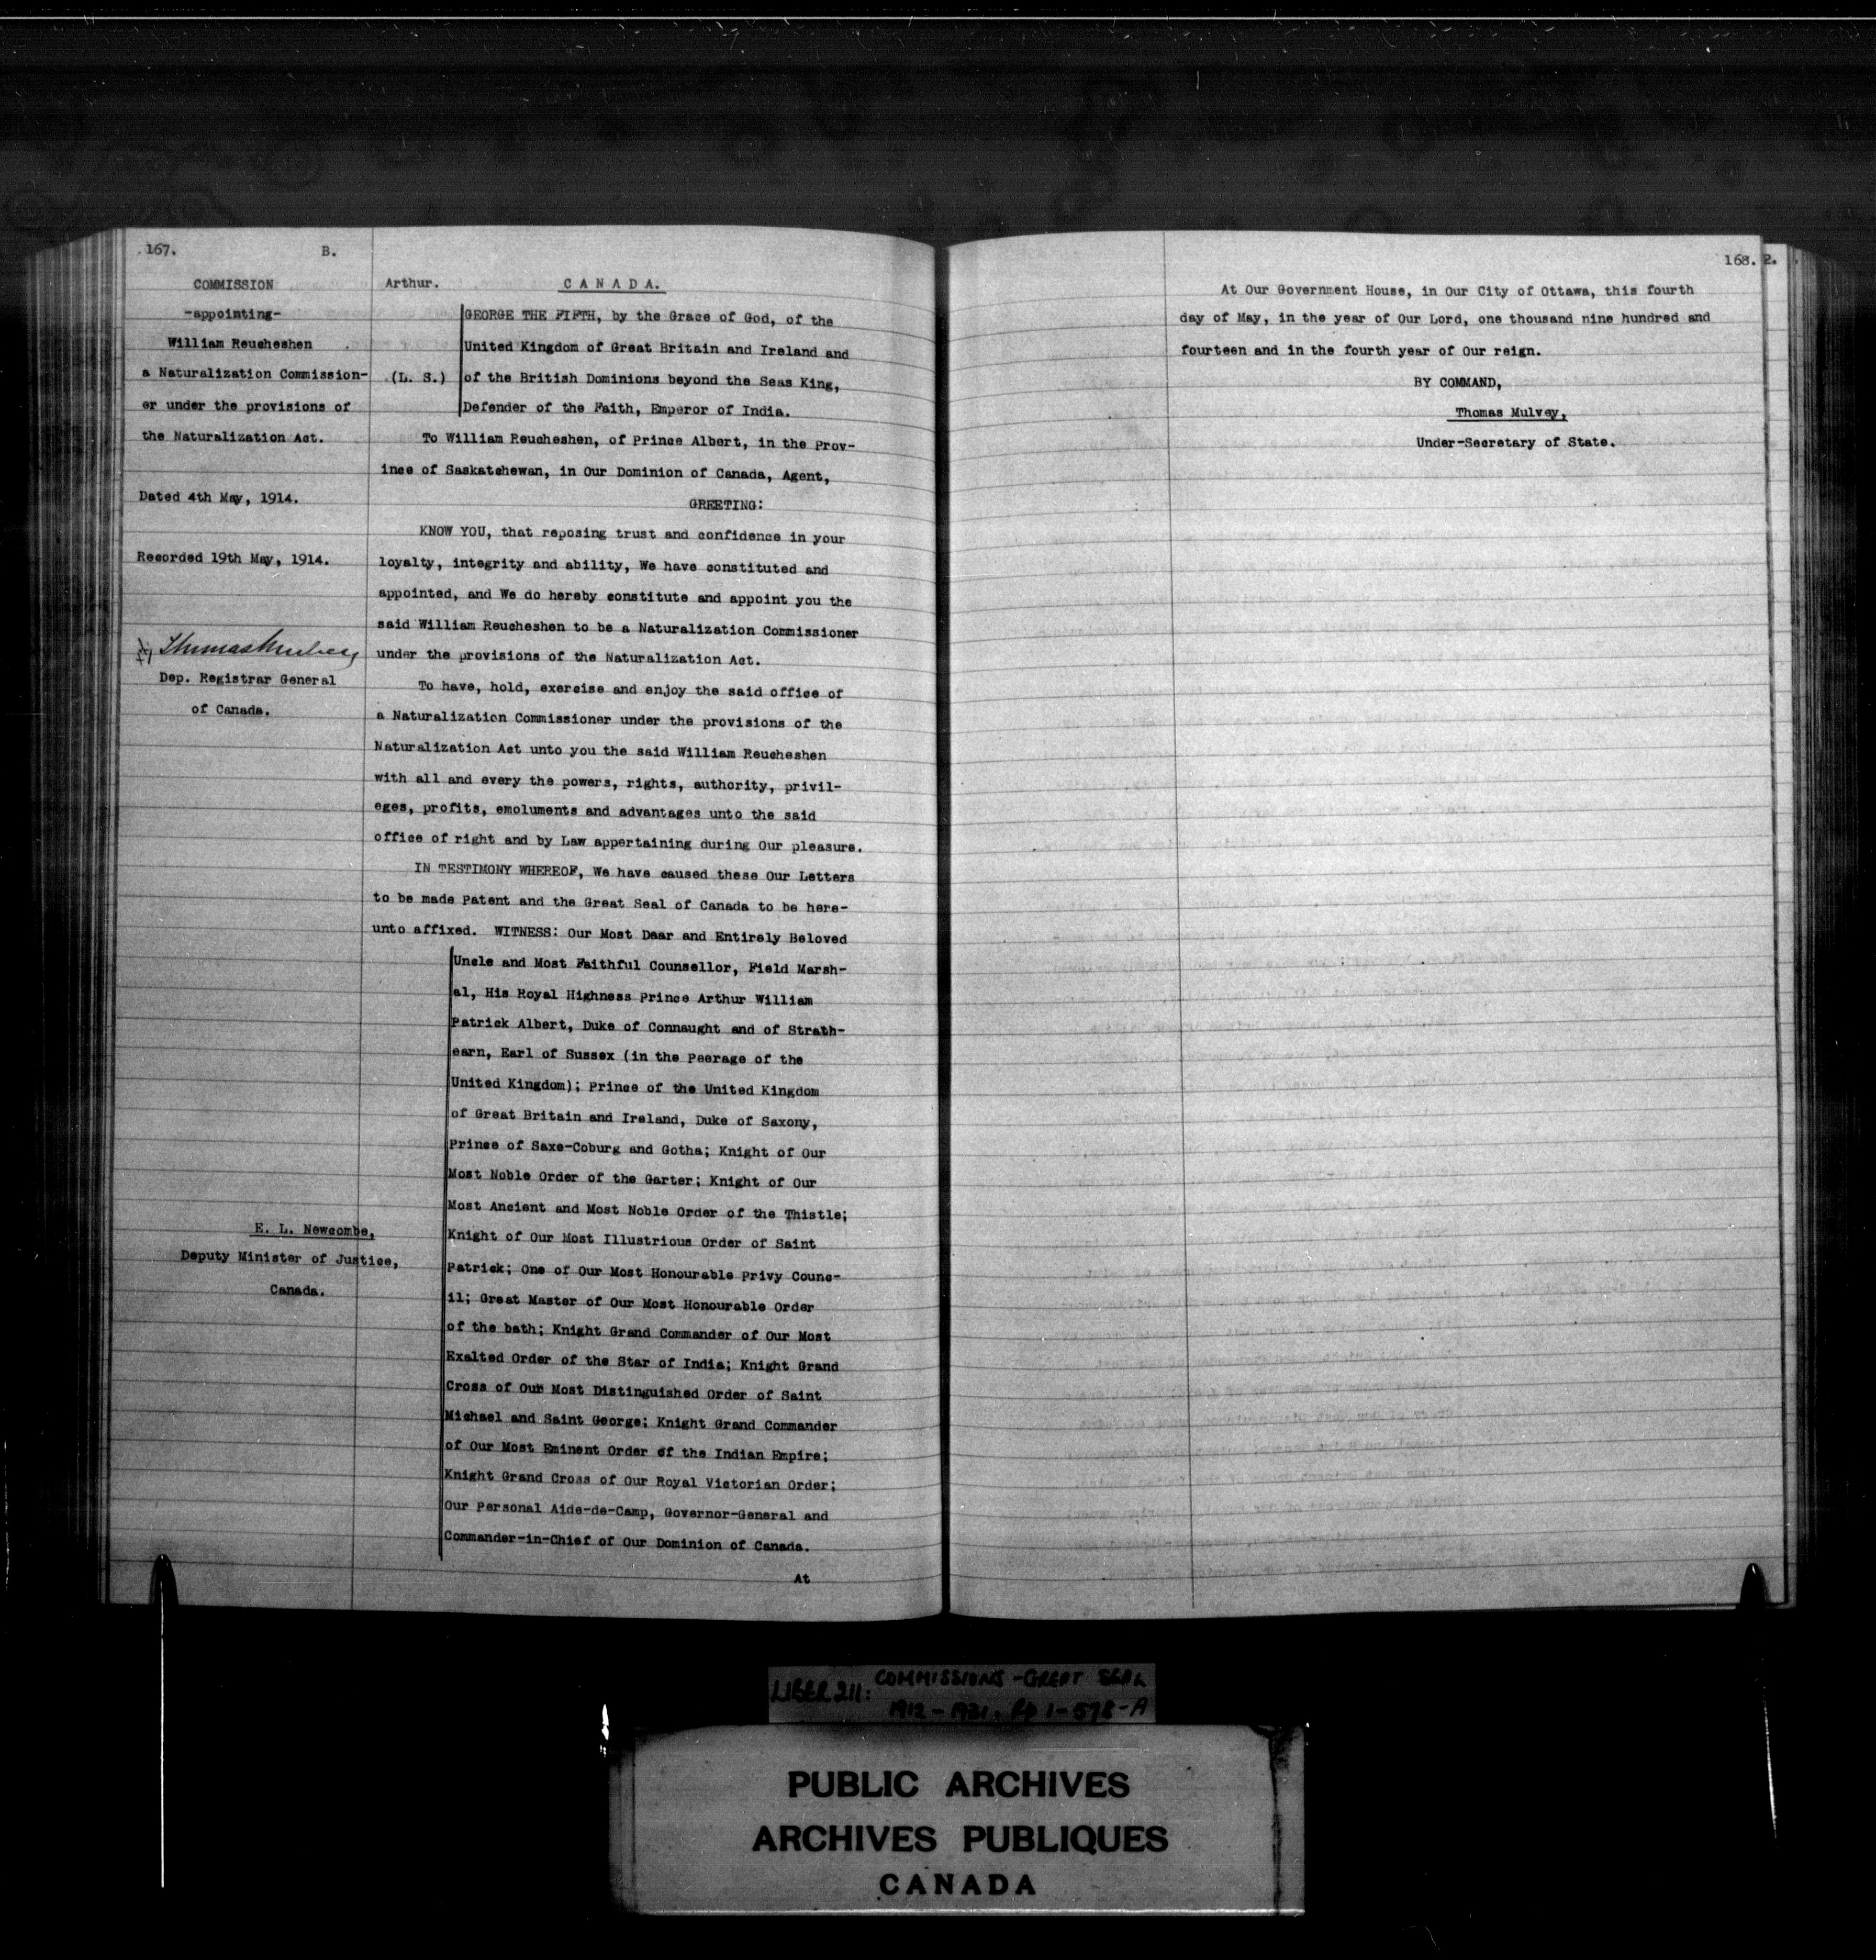 167.
B.
COMMISSION
-appointing-
William Reucheshen
a Naturalization Commission-
er under the provisions of
the Naturalization Act.
Dated 4th May, 1914.
Recorded 19th May, 1914.
Thomas Mulvey
Dep. Registrar General
of Canada.
E. L. Newcombe,
Deputy Minister of Justice,
Canada.
Arthur.
C A N A D A.
(L. S.)
GEORGE THE FIFTH, by the Grace of God, of the
United Kingdom of Great Britain and Ireland and
of the British Dominions beyond the Seas King,
Defender of the Faith, Emperor of India.
To William Reucheshen, of Prince Albert, in the Prov-
ince of Saskatchewan, in Our Dominion of Canada, Agent,
GREETING:
KNOW YOU, that reposing trust and confidence in your
loyalty, integrity and ability, We have constituted and
appointed, and We do hereby constitute and appoint you the
said William Reucheshen to be a Naturalization Commissioner
under the provisions of the Naturalization Act.
To have, hold, exercise and enjoy the said office of
a Naturalization Commissioner under the provisions of the
Naturalization Act unto you the said William Reucheshen
with all and every the powers, rights, authority, privil-
eges, profits, emoluments and advantages unto the said
office of right and by Law appertaining during Our pleasure.
IN TESTIMONY WHEREOF, We have caused these Our Letters
to be made Patent and the Great Seal of Canada to be here-
unto affixed. WITNESS: Our Most Daar and Entirely Beloved
Uncle and Most Faithful Counsellor, Field Marsh-
al, His Royal Highness Prince Arthur William
Patrick Albert, Duke of Connaught and of Strath-
earn, Earl of Sussex (in the Peerage of the
United Kingdom); Prince of the United Kingdom
of Great Britain and Ireland, Duke of Saxony,
Prince of Saxe-Coburg and Gotha; Knight of Our
Most Noble Order of the Garter; Knight of Our
Most Ancient and Most Noble Order of the Thistle;
Knight of Our Most Illustrious Order of Saint
Patrick; One of Our Most Honourable Privy Counc-
il; Great Master of Our Most Honourable Order
of the bath; Knight Grand Commander of Our Most
Exalted Order of the Star of India; Knight Grand
Cross of Our Most Distinguished Order of Saint
Michael and Saint George; Knight Grand Commander
of Our Most Eminent Order of the Indian Empire;
Knight Grand Cross of Our Royal Victorian Order;
Our Personal Aide-de-Camp, Governor-General and
Commander-in-Chief of Our Dominion of Canada.
At
168. 2.
At Our Government House, in Our City of Ottawa, this fourth
day of May, in the year of Our Lord, one thousand nine hundred and
fourteen and in the fourth year of Our reign.
BY COMMAND,
Thomas Mulvey,
Under-Secretary of State.
LIBER 211: COMMISSIONS - GREAT SEAL
1912 - 1921. Pp 1-578-A
PUBLIC ARCHIVES
ARCHIVES PUBLIQUES
CANADA